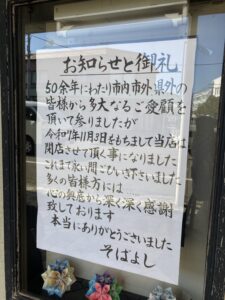 お知らせと御礼
50余年にわたり市内市外県外の
皆様から多大なるご愛顧を
頂いて参りましたが
令和7年11月3日をもちまして当店は
閉店させて頂く事になりました
これまで永い間ごひいき下さいました
多くの皆様方には
心の奥底から深く深く感謝
致しております
本当にありがとうございました
そばよし